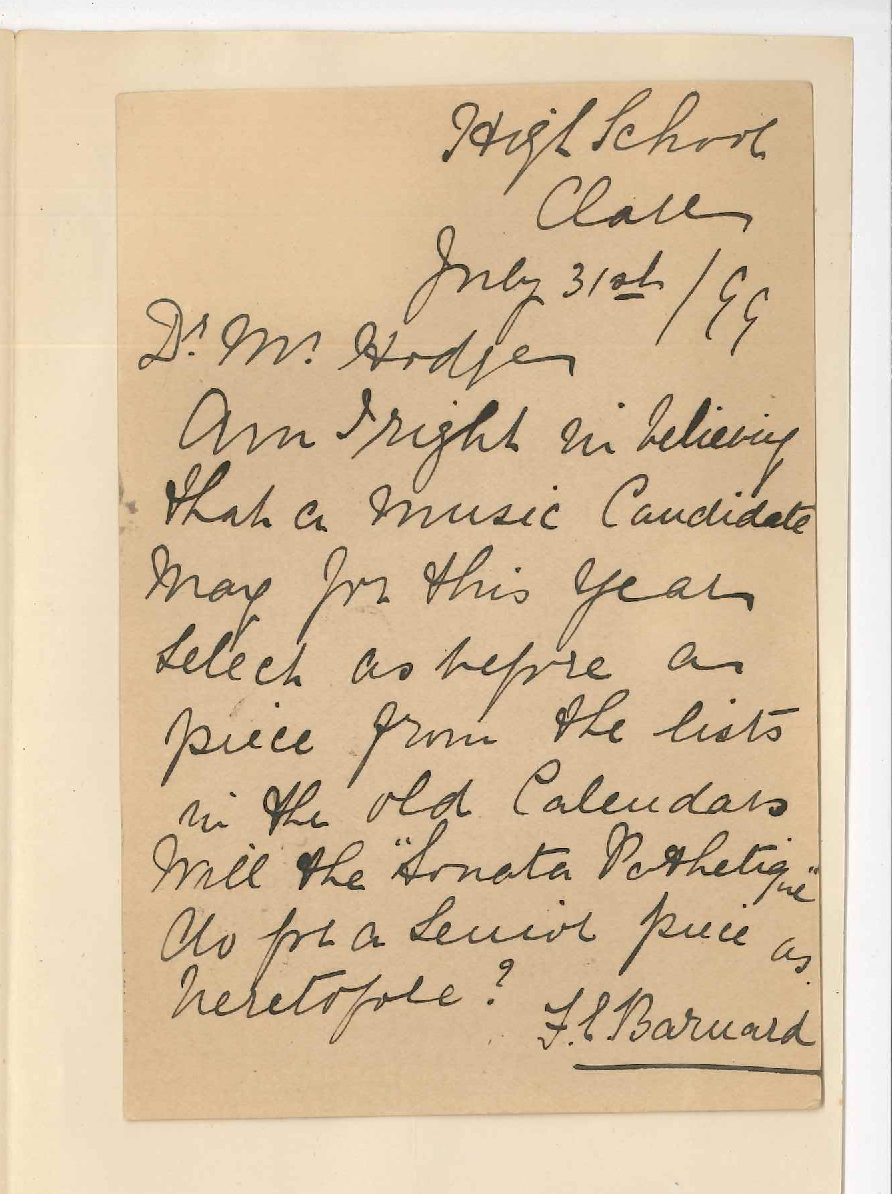 High School
Clare
July 31st /99
Dr. Mr. Hodge
Am I right in believing
that a Music Candidate
May for this year
Select as before a
piece from the lists
in the old Calendars
Will the "Sonata Pathetique"
do for a Senior piece as
heretofore?
F. E. Barnard